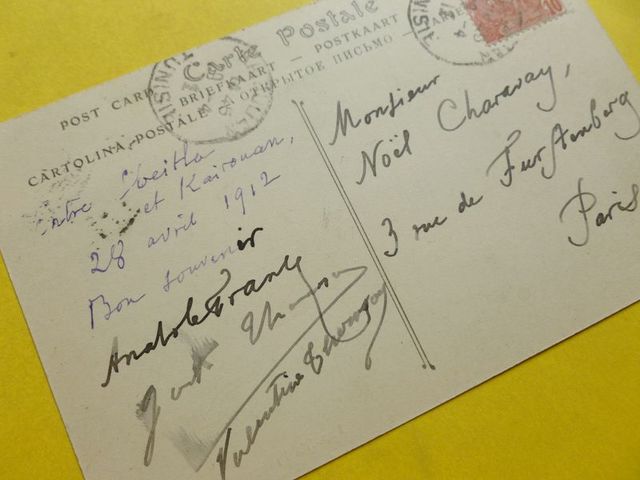 Carte Postale
POST CARD — BRIEFKAART — POSTKAART
CARTOLINA POSTALE — ОТКРЫТОЕ ПИСЬМО
TUNISIE
TUNISIE
10
entre Sbeitla
et Kairouan,
28 avril 1912
Bon souvenir
Anatole France
Valentine Thomson
Monsieur
Noël Charavay,
3 rue de Furstenberg
Paris